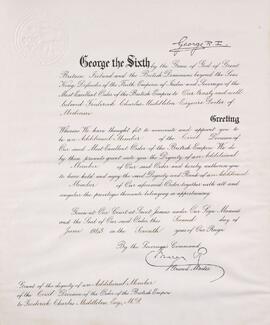 George R. I.
George the Sixth by the Grace of God of Great
Britain, Ireland and the British Dominions beyond the Seas
King, Defender of the Faith, Emperor of India and Sovereign of the
Most Excellent Order of the British Empire to Our trusty and well
beloved Frederick Charles Middleton Esquire Doctor of
Medicine
Greeting
Whereas We have thought fit to nominate and appoint you to
be an Additional Member of the Civil Division of
Our said Most Excellent Order of the British Empire We do
by these presents grant unto you the Dignity of an Additional
Member of Our said Order and hereby authorise you
to have hold and enjoy the said Dignity and Rank of an Additional
Member of Our aforesaid Order together with all and
singular the privileges thereunto belonging or appertaining
Given at Our Court at Saint James's under Our Sign Manual
and the Seal of Our said Order this Second day of
June 1943 in the Seventh year of Our Reign
By the Sovereign's Command
Grand Master
Grant of the dignity of an Additional Member
of the Civil Division of the Order of the British Empire
to Frederick Charles Middleton, Esq., M.D.